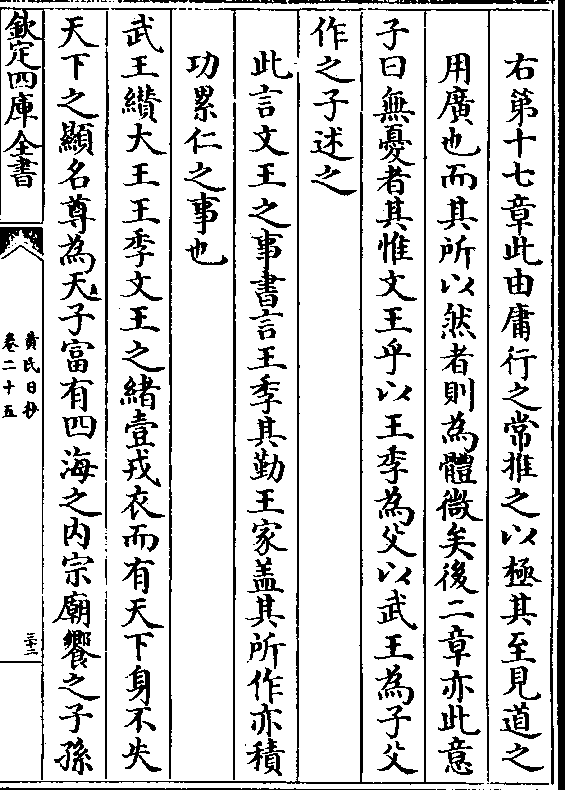 右第十七章此由庸行之常推之以極其至見道之
用廣也而其所以然者則為體微矣後二章亦此意
子曰無憂者其惟文王乎以王季為父以武王為子父
作之子述之
此言文王之事書言王季其勤王家盖其所作亦積
功累仁之事也
武王纘大王王季文王之緒壹戎衣而有天下身不失
天下之顯名尊為天子富有四海之内宗廟饗之子孫
欽定四庫全書
黄氏日抄
卷二十五
三十三